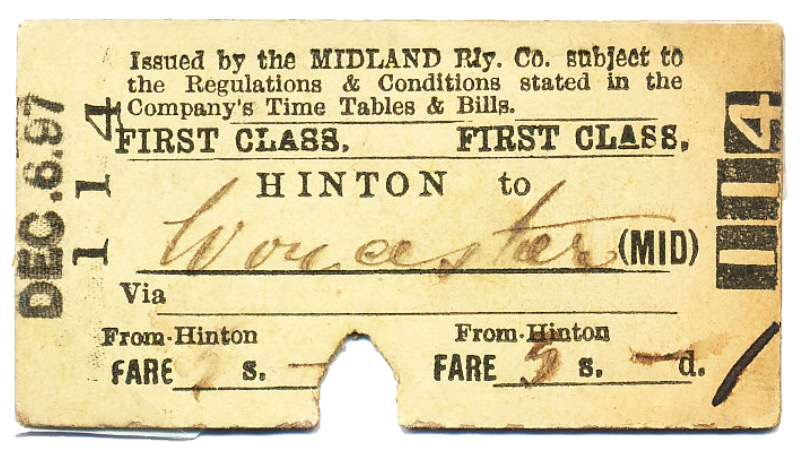 Issued by the MIDLAND Rly. Co. subject to
the Regulations & Conditions stated in the
Company's Time Tables & Bills.
FIRST CLASS. FIRST CLASS.
HINTON to
Worcester (MID)
Via
From Hinton From Hinton
FARE s. – FARE 5 s. – d.
DEC.6.97
114
114